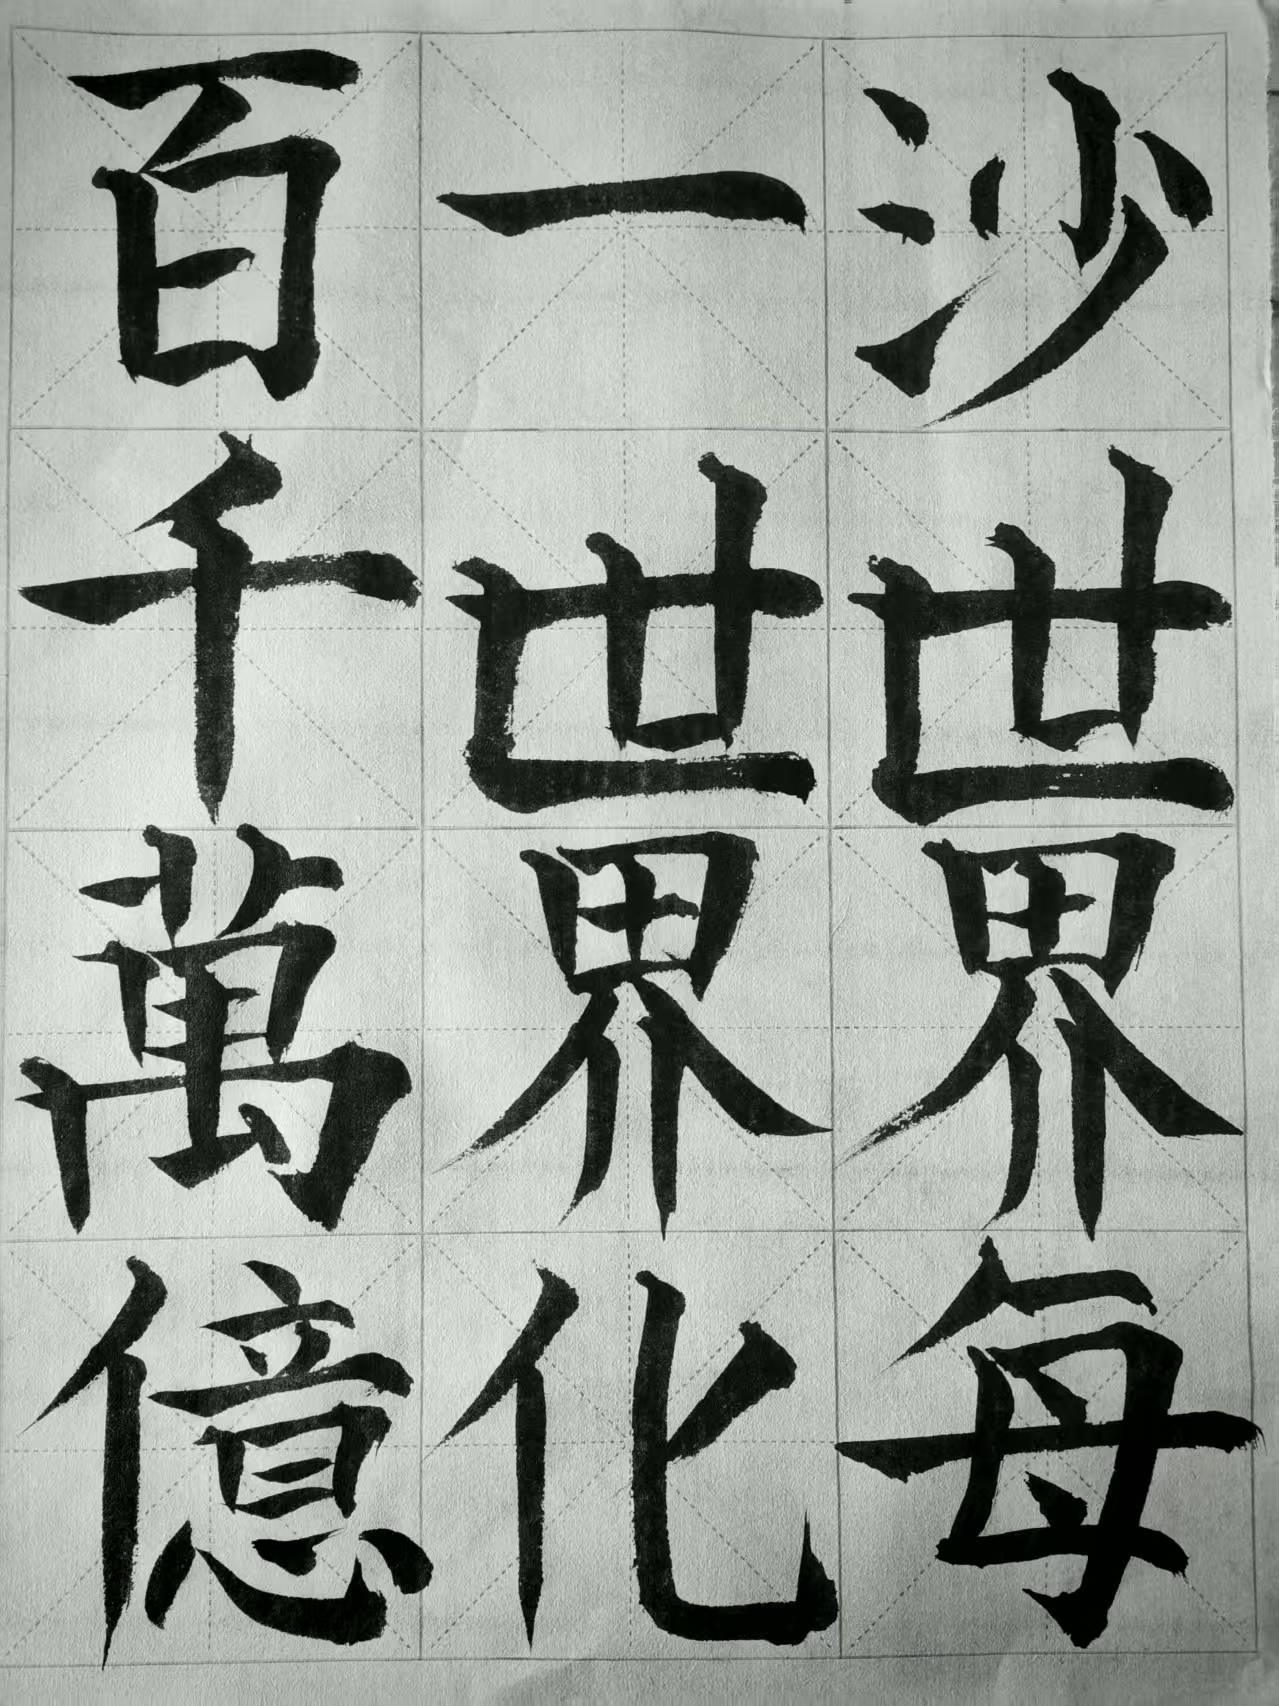 沙世界每
一世界化
百千萬億